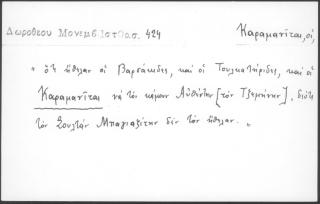 Δωροθέου Μονεμβ[ασίας] 424
Καραμανῖται, οἱ,
" ὅτι ἤθελαν οἱ Βαρσάκιδες, καὶ οἱ Τουλκατήριδες, καὶ οἱ
Καραμανῖται νὰ τὸν κάμουν Αὐθέντην [τὸν Τζεμπίνην], διότι
τὸν Σουλτὰν Μπαγιαζίτην δὲν τὸν ἤθελαν. "